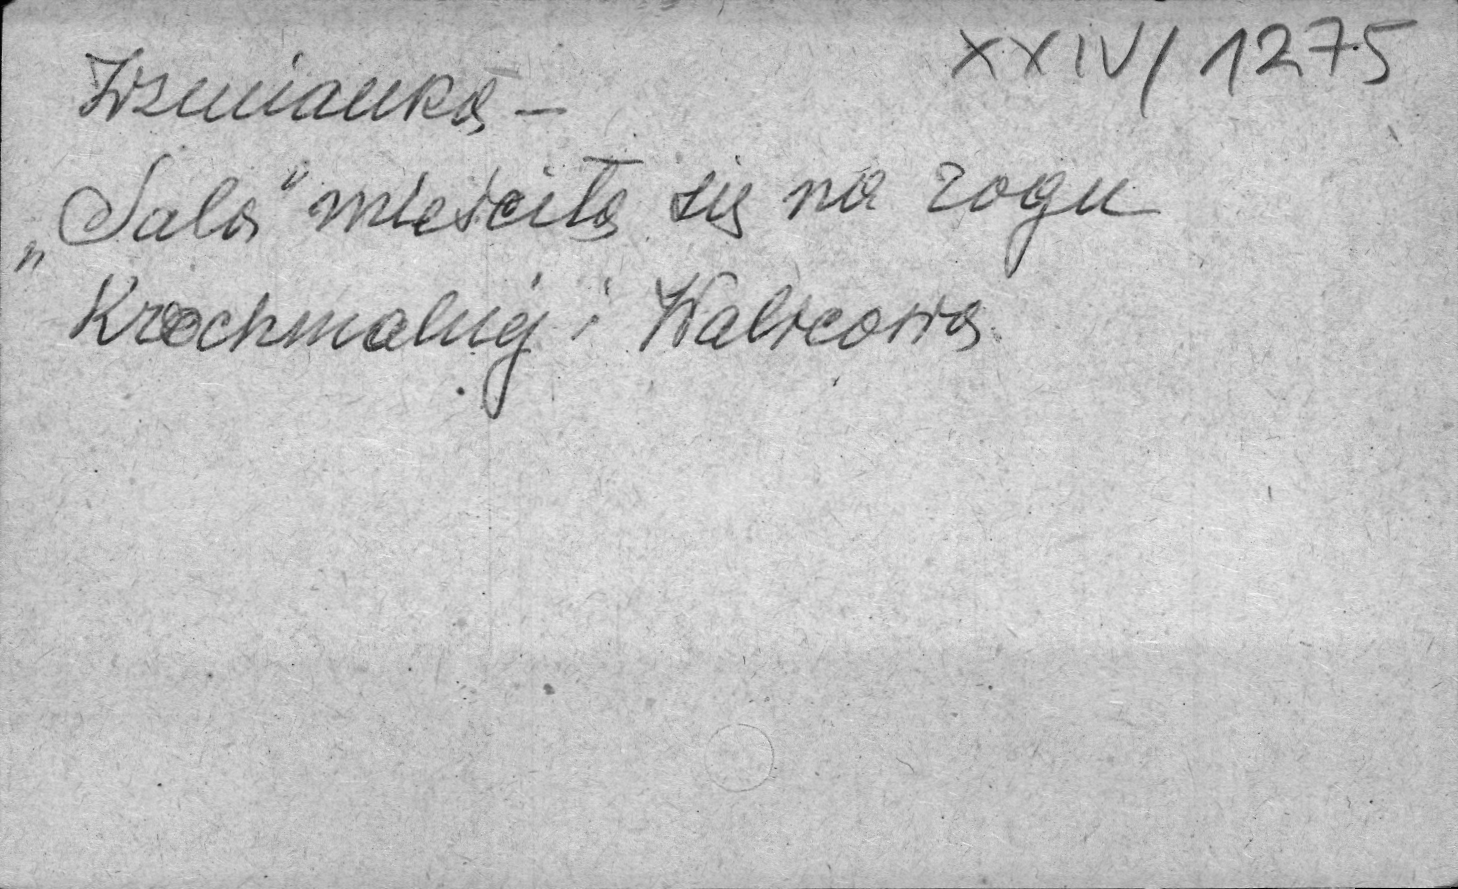 XXIV/1275
Wzmianka –
„Sala" mieściła się na rogu
Krochmalnej i Walicowa